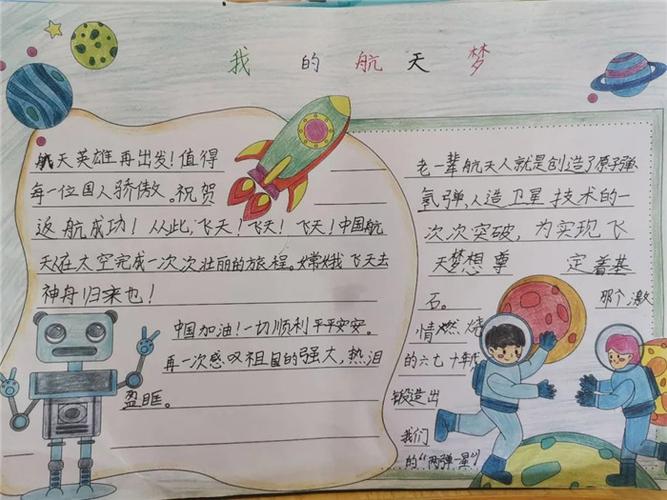 我的航天梦
航天英雄再出发！值得
每一位国人骄傲。祝贺
返航成功！从此，飞天！飞天！飞天！中国航
天人在太空完成一次次壮丽的旅程。嫦娥飞天去
神舟归来也！
中国加油！一切顺利平平安安。
再一次感叹祖国的强大，热泪
盈眶。
老一辈航天人就是创造了原子弹
氢弹，人造卫星技术的一
次次突破，为实现飞
天梦想尊 定着基
石。 那个激
情燃烧
的六七十年代
锻造出
我们
的“两弹一星”